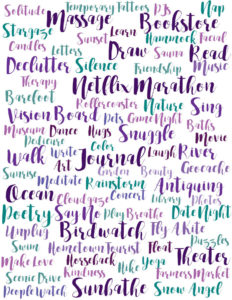 Solitude Temporary Tattoos DJs Nap
Massage Bookstore
Stargaze Sunset Learn Hammock Facial
Candles Letters Draw Sauna Read
Declutter Silence Friendship Music
Therapy Netflix Marathon
Barefoot Rollercoaster Mature Sing
Vision Board Pets Game Night Baths
Museum Dance Hugs Snuggle Movie
Pedicure Color
Walk Write Journal Laugh River
Art Garden Beauty Geocache
Sunrise Meditate Rainstorm Antiquing
Ocean Cloudgaze Concert Photos
Poetry Say No Play Breathe Date Night
Unplug Birdwatch Fly A Kite
Swim Hometown Tourist Float Puzzles
Make Love Horseback Hike Yoga Theater
Scenic Drive Kindness Farmers Market
People Watch Sunbathe Snow Angel